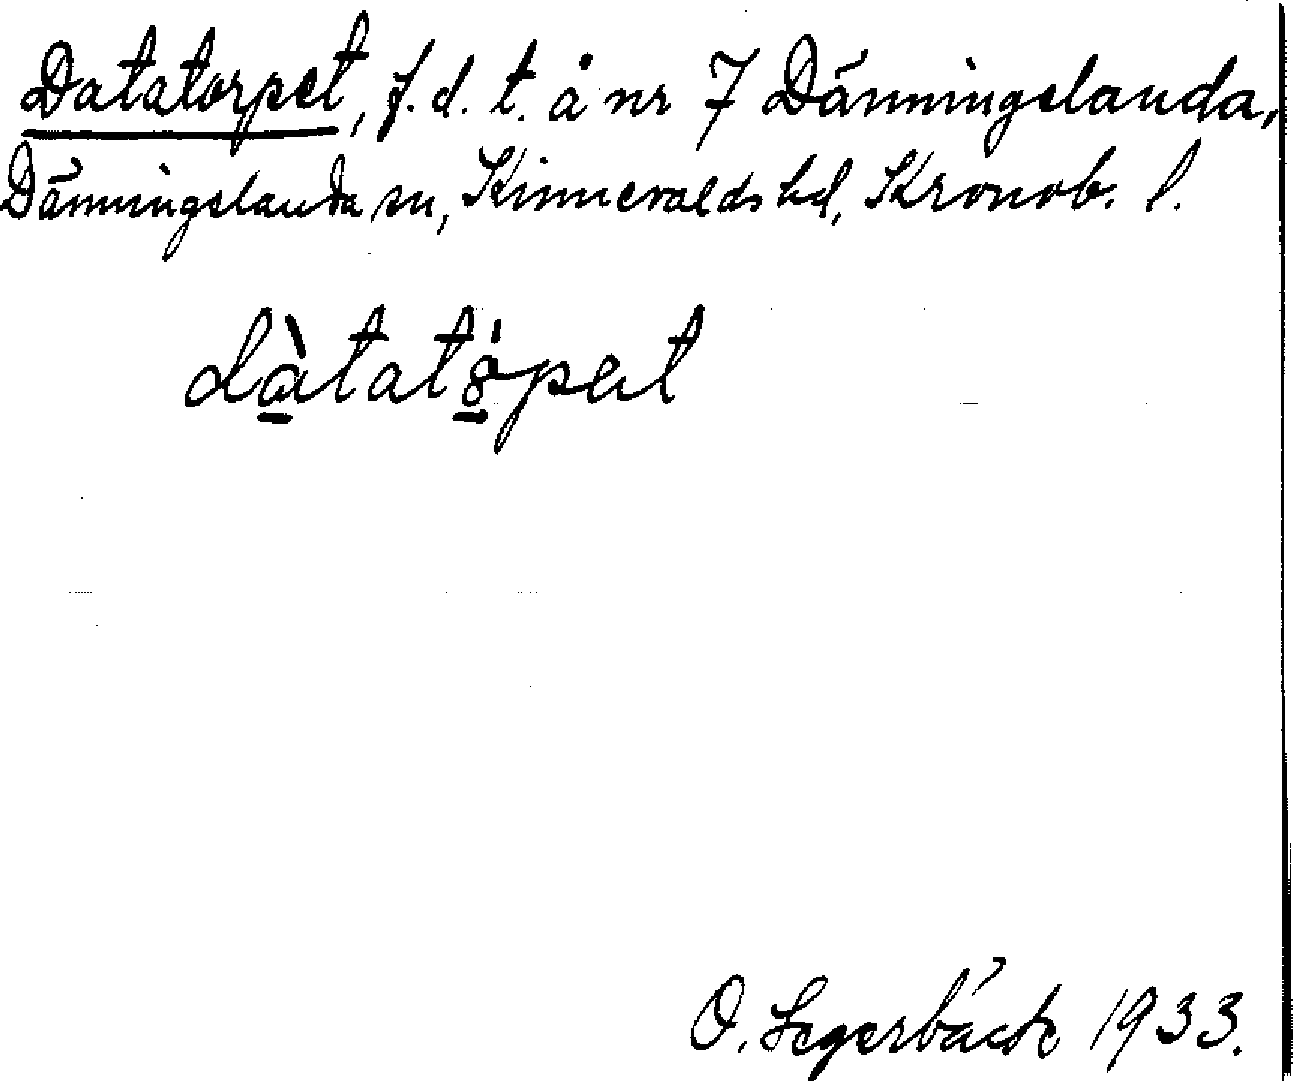 Datatorpet, f.d. t. å nr 7 Dänningelanda,
Dänningelanda sn, Kinnevalds hd, Kronob. l.
dàtatȯ́pet
O. Segerbäck 1933.